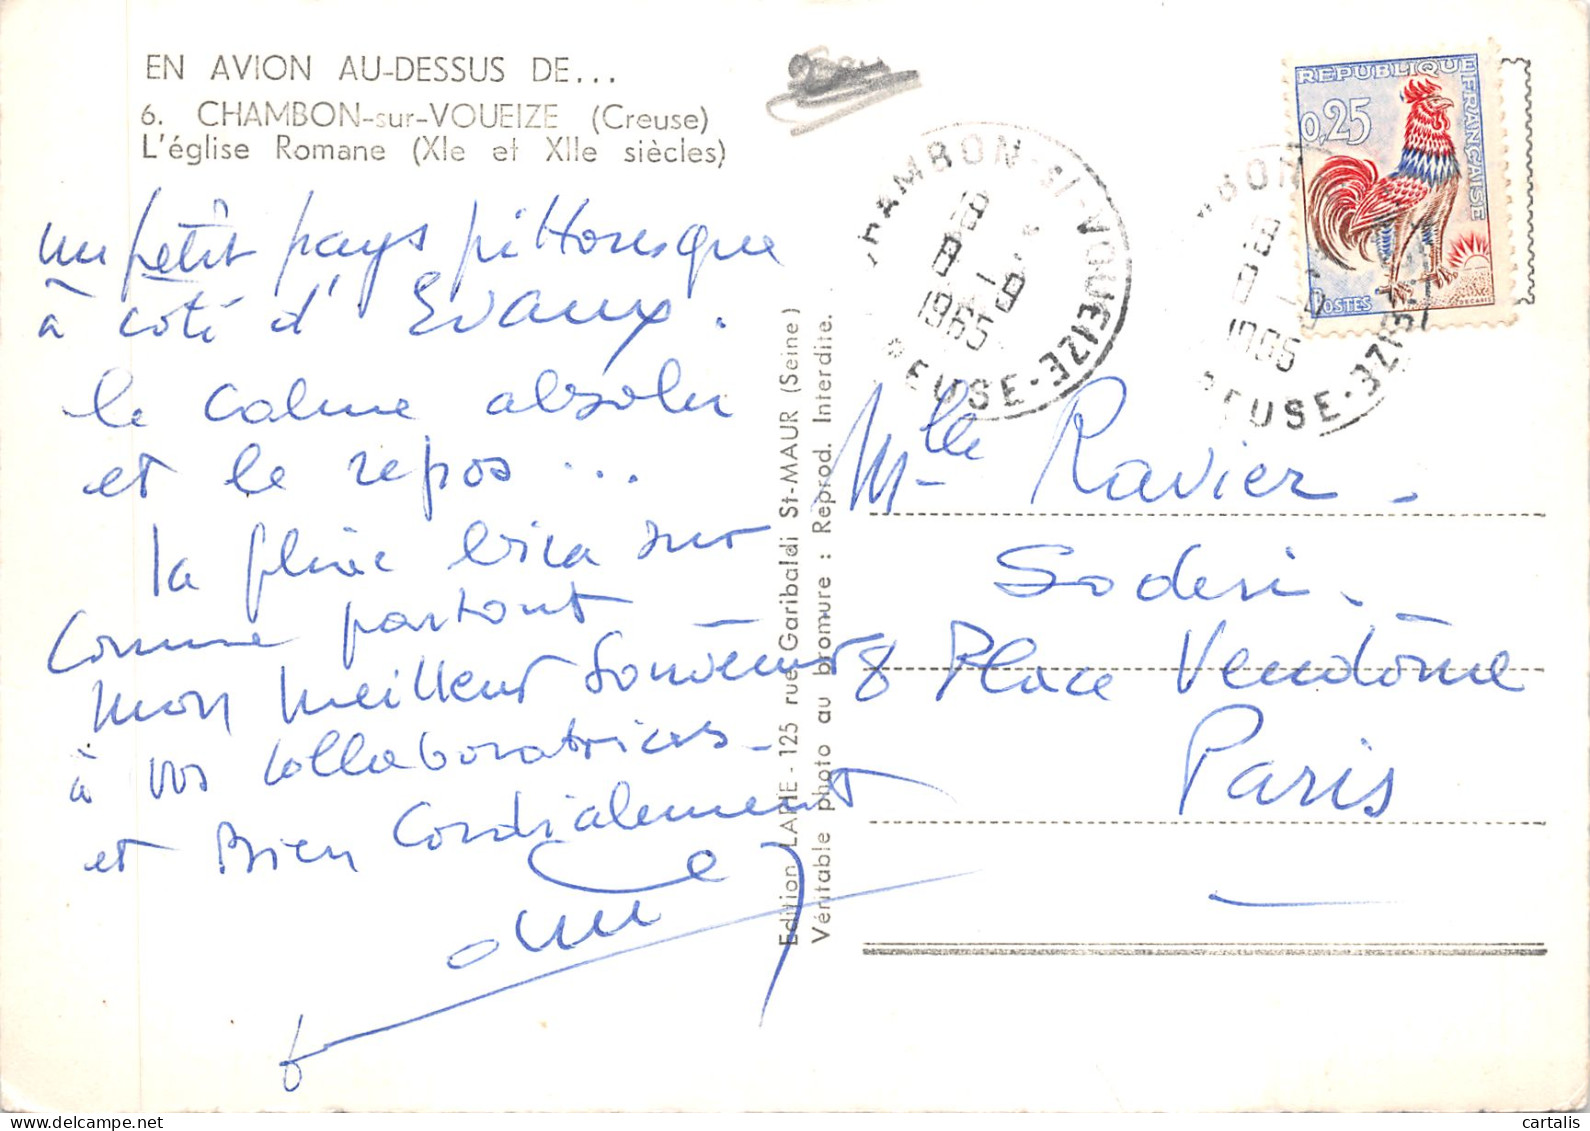 EN AVION AU-DESSUS DE...
6. CHAMBON-sur-VOUEIZE (Creuse)
L'église Romane (XIe et XIIe siècles)
un petit pays pittoresque
à côté d'Evaux.
le calme absolu
et le repos ...
la pluie bien sur
comme partout
mon meilleur souvenir
à vos collaboratrices -
et Bien Cordialement
Edition LAPIE - 125 rue Garibaldi St-MAUR (Seine)
Véritable photo au bromure : Reprod. Interdite.
CHAMBON-s/-VOUEIZE
18
8 -9
1965
CREUSE
BON
18
8 -9
1965
EIZE
REUSE
REPUBLIQUE FRANÇAISE
0,25
POSTES
Mlle Ravier -
Soderi -
8 Place Vendôme
Paris
cartalis
www.delcampe.net